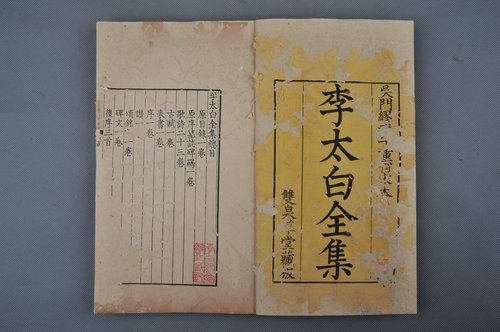 吳門繆
李太白全集
雙泉堂藏板
李太白全集總目
原目錄一卷
原序墓誌碑碣一卷
歌詩二十三卷
古賦一卷
表書一卷
序一卷
讚一卷
頌銘一卷
碑文一卷
後序三首